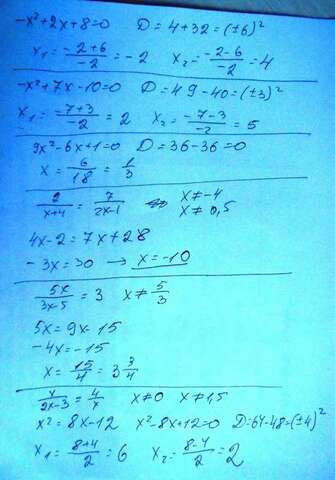 -x²+2x+8=0 D=4+32=(±6)²
x₁=(-2+6)/(-2)=-2 x₂=(-2-6)/(-2)=4
-x²+7x-10=0 D=49-40=(±3)²
x₁=(-7+3)/(-2)=2 x₂=(-7-3)/(-2)=5
9x²-6x+1=0 D=36-36=0
x=6/18=1/3
2/(x+4)=7/(2x-1) ⇔ x≠-4
x≠0,5
4x-2=7x+28
-3x=30 → x=-10
5x/(3x-5)=3 x≠5/3
5x=9x-15
-4x=-15
x=15/4=3 3/4
x/(2x-3)=4/x x≠0 x≠1,5
x²=8x-12 x²-8x+12=0 D=64-48=(±4)²
x₁=(8+4)/2=6 x₂=(8-4)/2=2